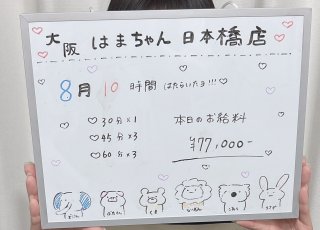 ♡ 大阪 はまちゃん 日本橋店 ♡
8月 10 時間 はたらいたョ!!!
♡ 30分×1
♡ 45分×3
♡ 60分×3
本日のお給料
¥77,000-